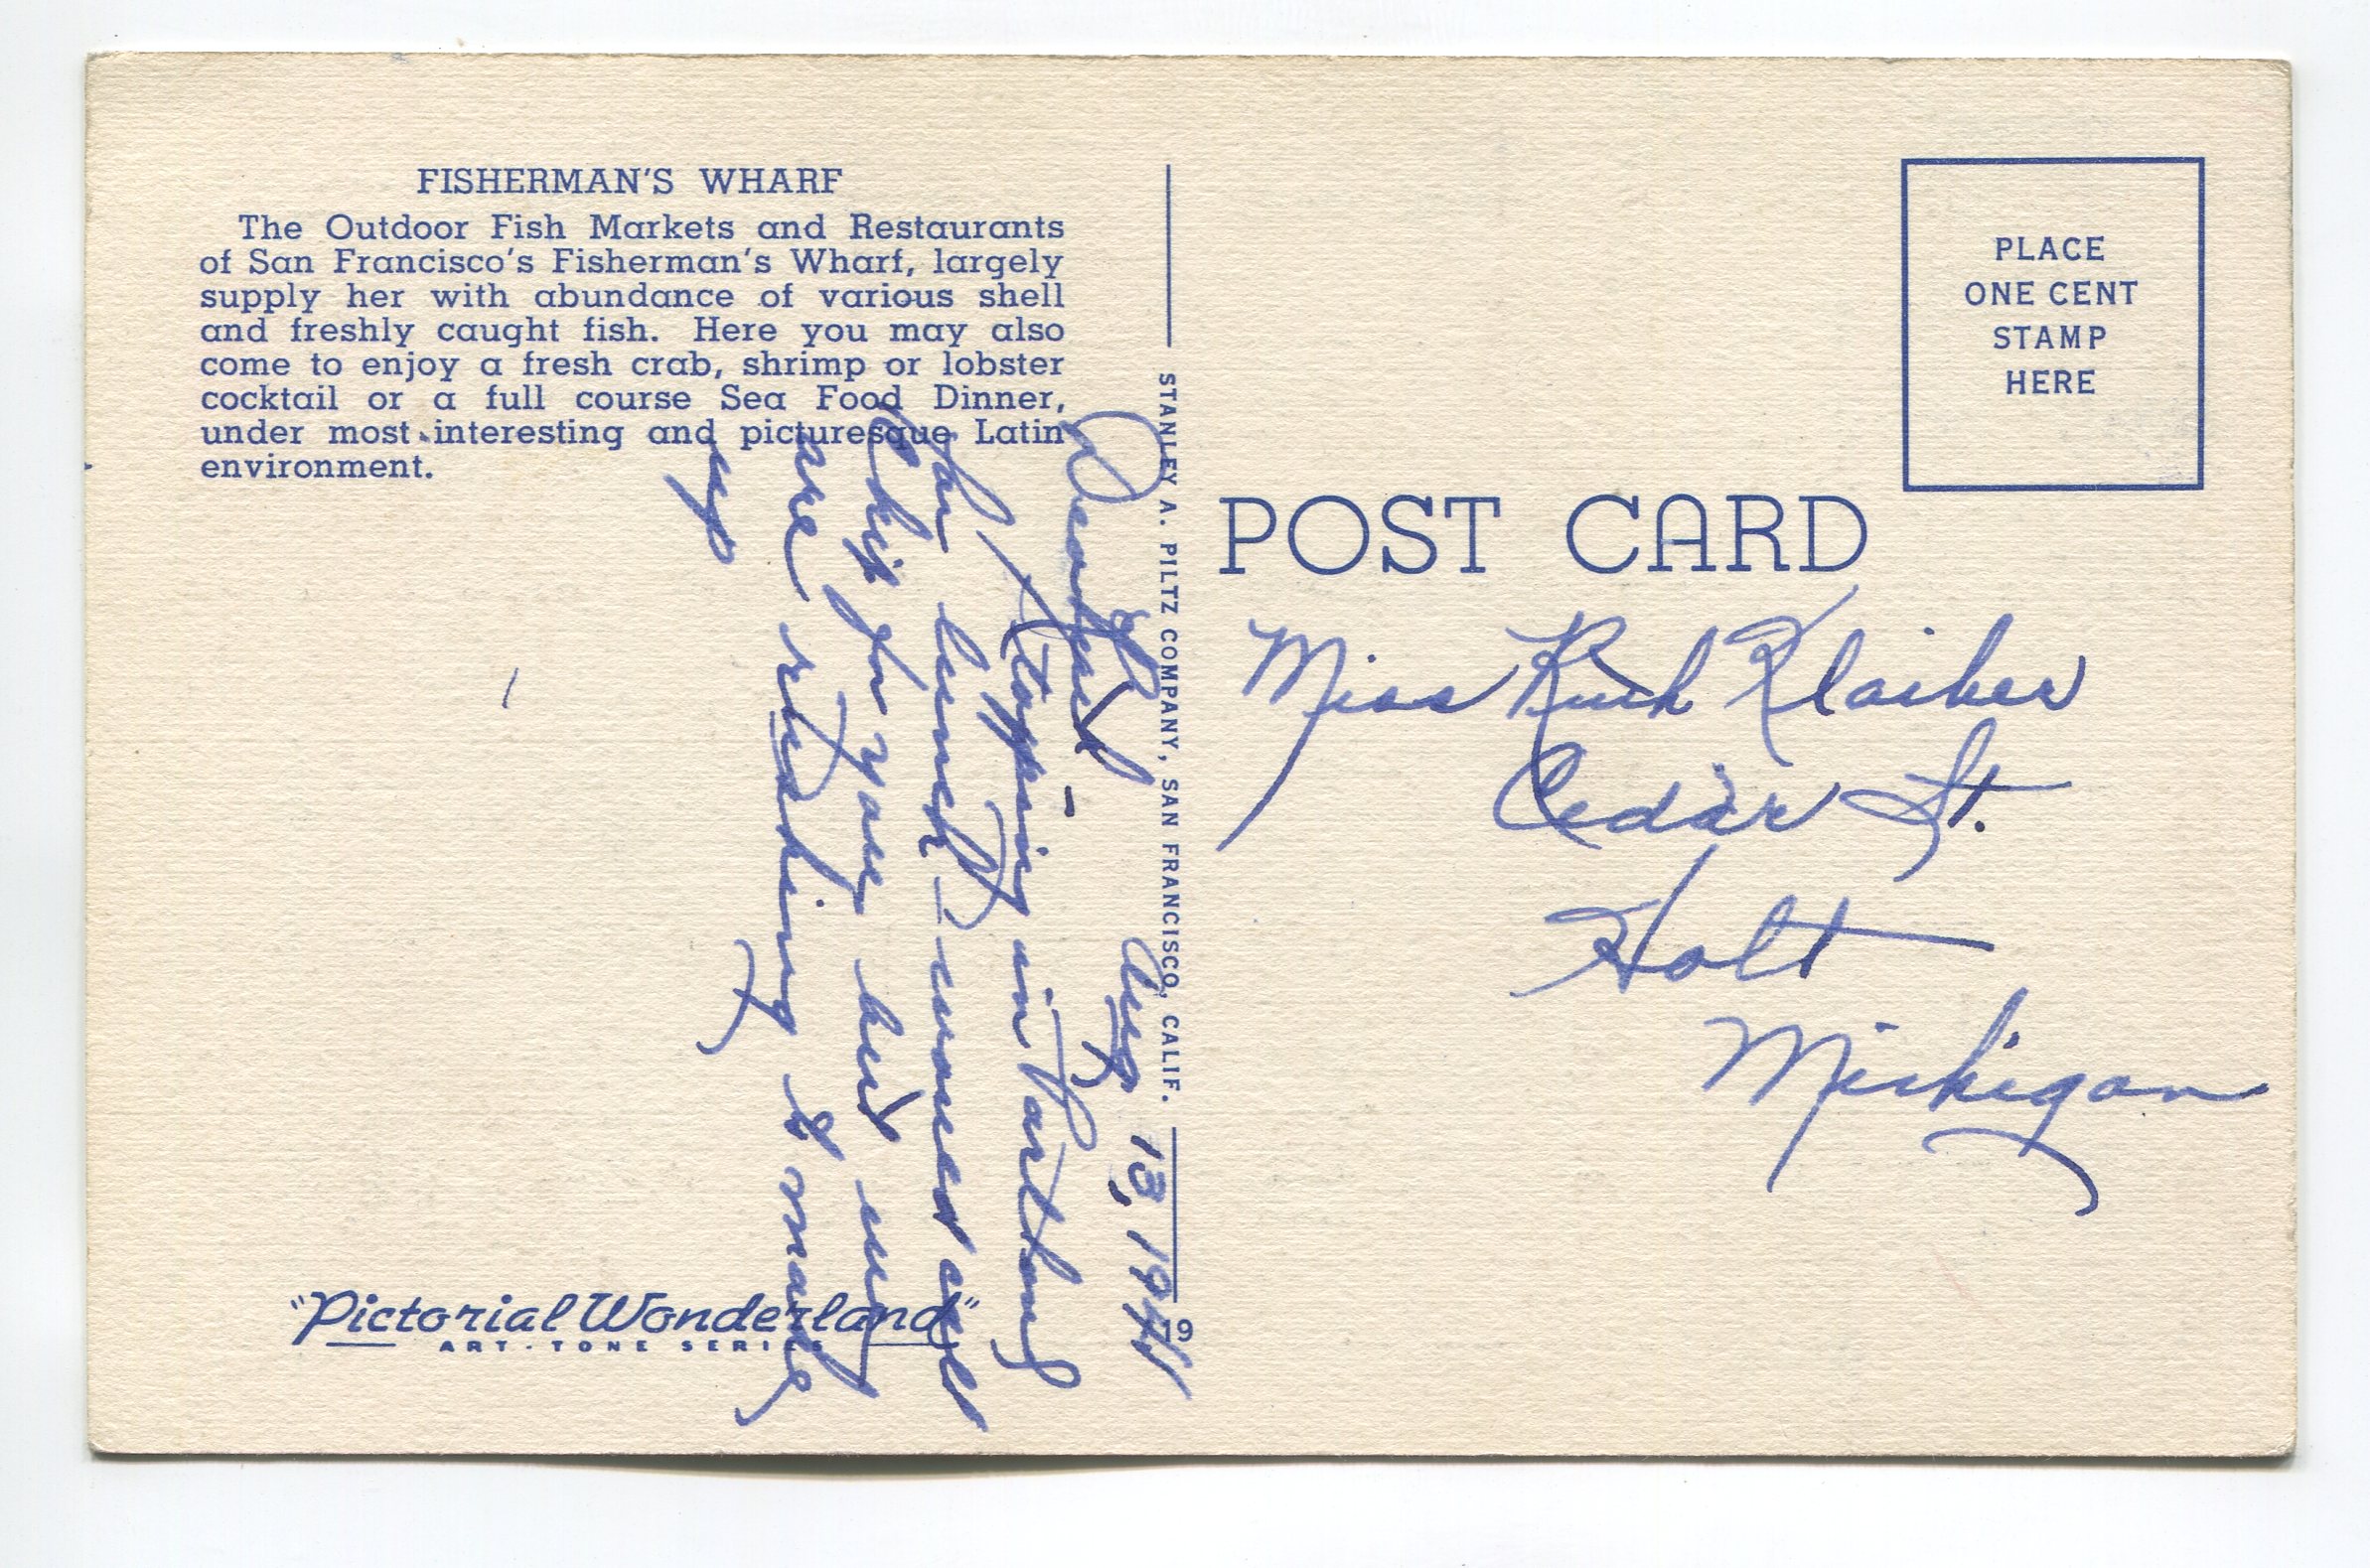 FISHERMAN'S WHARF
The Outdoor Fish Markets and Restaurants
of San Francisco's Fisherman's Wharf, largely
supply her with abundance of various shell
and freshly caught fish. Here you may also
come to enjoy a fresh crab, shrimp or lobster
cocktail or a full course Sea Food Dinner,
under most interesting and picturesque Latin
environment.
Aug 13, 1944
Dear
Stopping in
for lunch -
for you but
are rushing &
up
"Pictorial Wonderland"
ART-TONE SERIES
STANLEY A. PILTZ COMPANY, SAN FRANCISCO, CALIF.
79
PLACE
ONE CENT
STAMP
HERE
POST CARD
Miss Ruth Klaiber
Cedar St.
Holt
Michigan